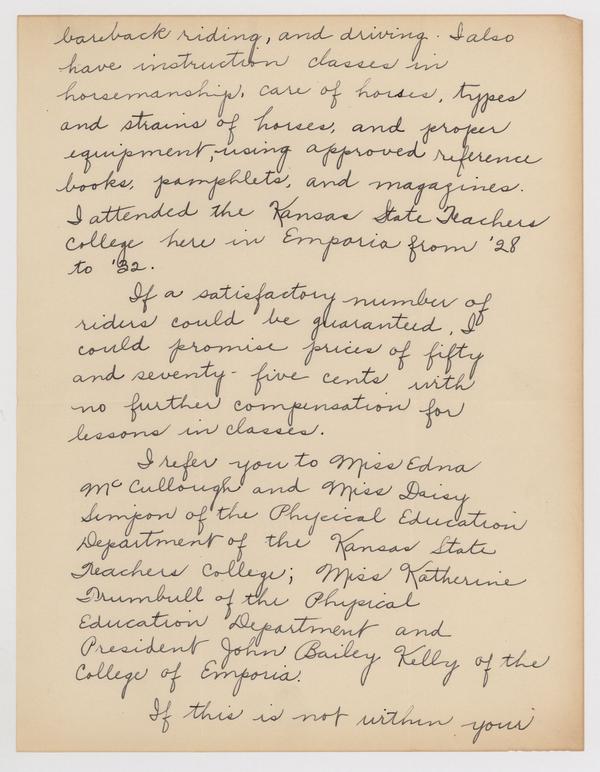 bareback riding, and driving. I also
have instruction classes in
horsemanship, care of horses, types
and strains of horses, and proper
equipment, using approved reference
books, pamphlets, and magazines.
I attended the Kansas State Teachers
College here in Emporia from '28
to '32.
If a satisfactory number of
riders could be guaranteed, I
could promise prices of fifty
and seventy-five cents with
no further compensation for
lessons in classes.
I refer you to Miss Edna
McCullough and Miss Daisy
Simpson of the Physical Education
Department of the Kansas State
Teachers College; Miss Katherine
Trumbull of the Physical
Education Department and
President John Bailey Kelly of the
College of Emporia.
If this is not within your